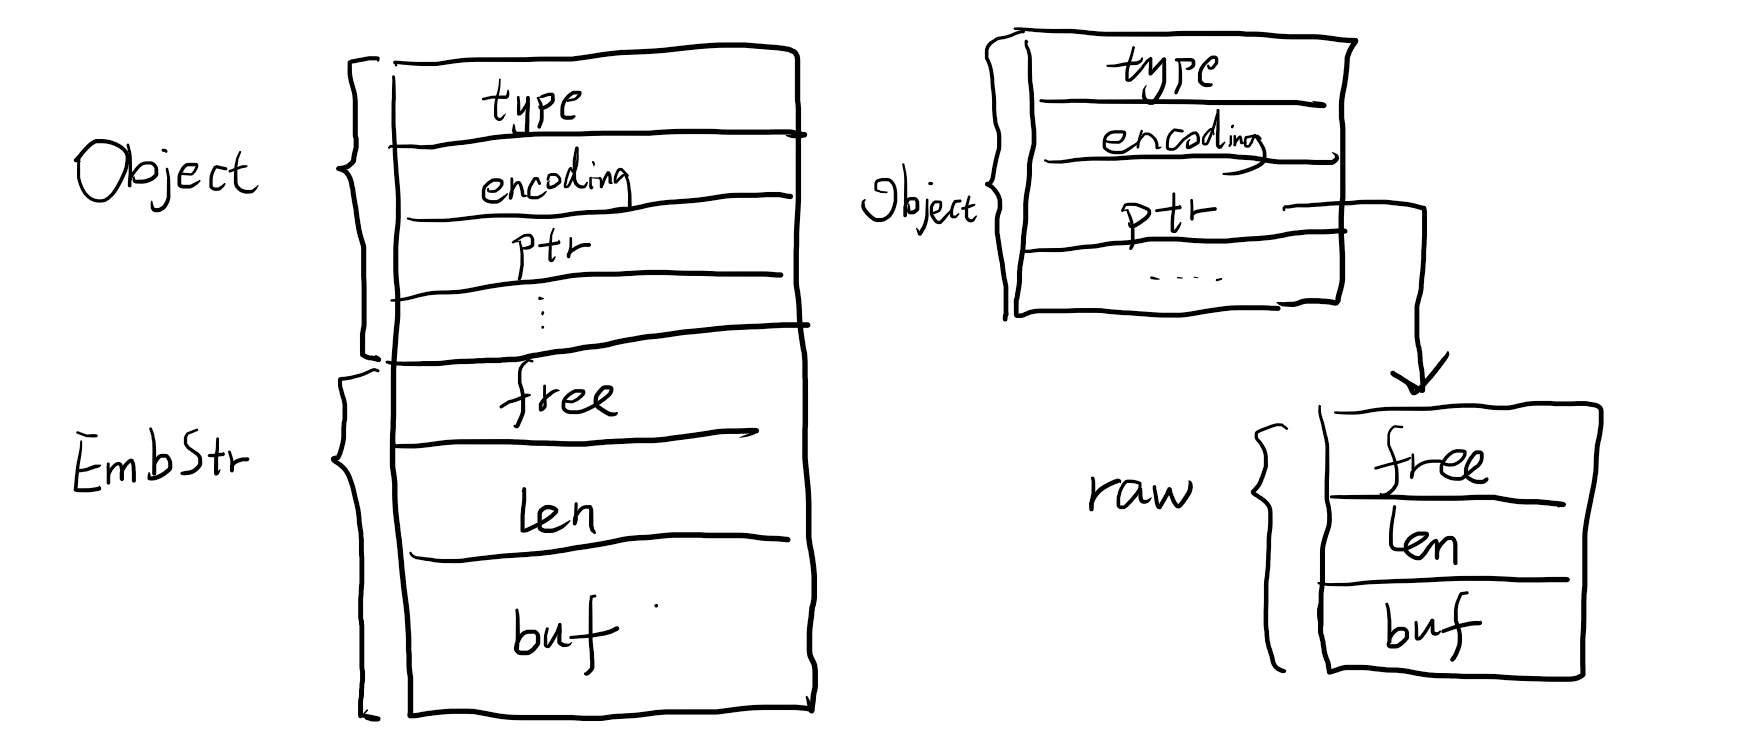 Object
type
encoding
ptr
⋮
EmbStr
free
len
buf
Object
type
encoding
ptr
.....
raw
free
len
buf